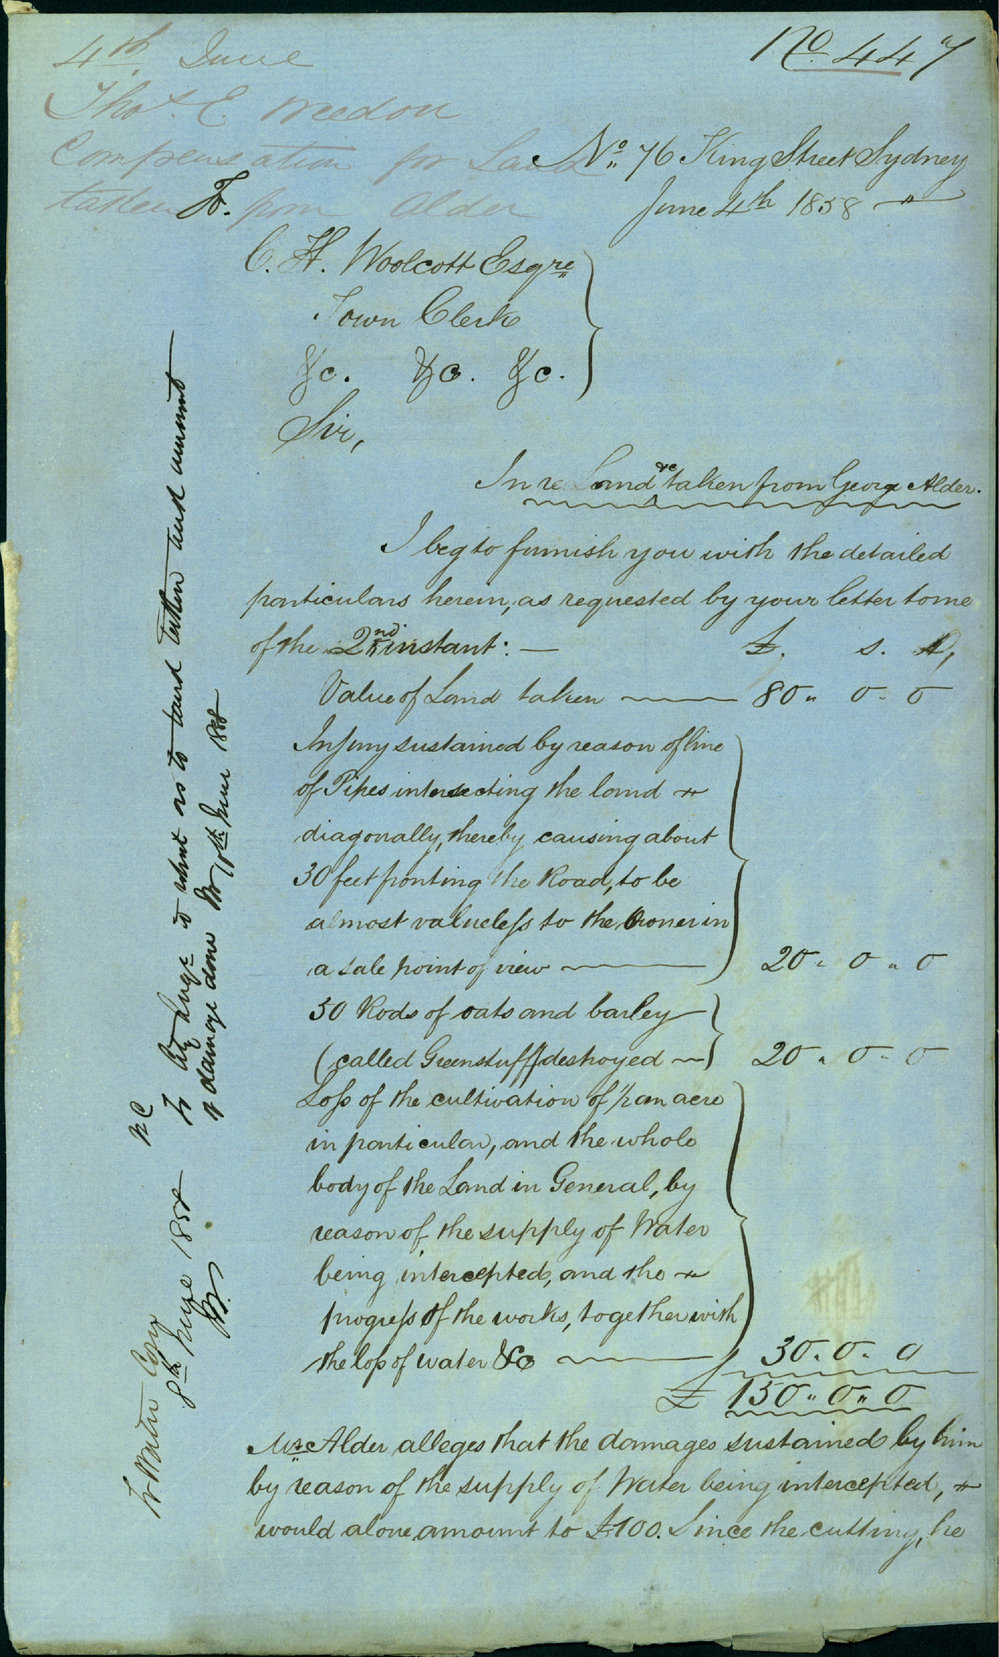 No. 447
4th June
Thos. E. Weedon
Compensation for Land
taken from Alder
No. 76 King Street Sydney
June 4th 1858
To.
C. H. Woolcott Esqre
Town Clerk
&c. &c. &c.
Sir,
In re Land &c taken from George Alder.
I beg to furnish you with the detailed
particulars herein, as requested by your letter to me
of the 2nd instant: — £. s. d,
Value of Land taken — 80 " 0 - 0
Injury sustained by reason of line
of Pipes intersecting the land
diagonally, thereby causing about
30 feet fronting the Road, to be
almost valueless to the Owner in
a sale point of view — 20 - 0 " 0
50 Rods of oats and barley
(called Greenstuff) destroyed — 20 " 0 - 0
Loss of the cultivation of 1/2 an acre
in particular, and the whole
body of the Land in General, by
reason of the supply of Water
being intercepted, and the
progress of the works, together with
the loss of water &c — 30 - 0 - 0
£ 150 " 0 " 0
Mr Alder alleges that the damages sustained by him
by reason of the supply of Water being intercepted,
would alone amount to £100. Since the cutting, he
Water Com
8th June 1858
to what as to land taken and amount
of damage done 10th June 1858